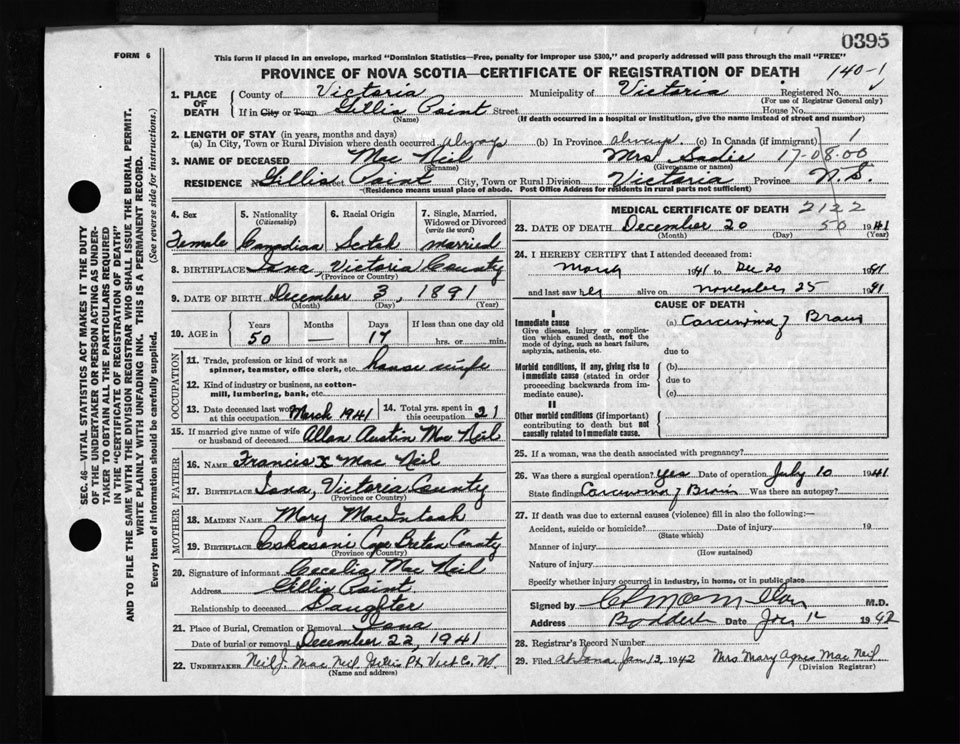 0395
FORM 6
This form if placed in an envelope, marked "Dominion Statistics—Free, penalty for improper use $300," and properly addressed will pass through the mail "FREE"
PROVINCE OF NOVA SCOTIA—CERTIFICATE OF REGISTRATION OF DEATH 140-1
SEC. 46—VITAL STATISTICS ACT MAKES IT THE DUTY
OF THE UNDERTAKER OR PERSON ACTING AS UNDER-
TAKER TO OBTAIN ALL THE PARTICULARS REQUIRED
IN THE "CERTIFICATE OF REGISTRATION OF DEATH"
AND TO FILE THE SAME WITH THE DIVISION REGISTRAR WHO SHALL ISSUE THE BURIAL PERMIT.
WRITE PLAINLY WITH UNFADING INK. THIS IS A PERMANENT RECORD.
Every item of information should be carefully supplied. (See reverse side for instructions.)
1. PLACE OF DEATH
County of Victoria Municipality of Victoria Registered No.
(For use of Registrar General only)
If in City or Town Gillis Point Street House No.
(Name) (If death occurred in a hospital or institution, give the name instead of street and number)
2. LENGTH OF STAY (in years, months and days)
(a) In City, Town or Rural Division where death occurred always (b) In Province always (c) In Canada (if immigrant) 1
3. NAME OF DECEASED Mac Neil Mrs Sadie 17-08-00
(Surname) (Given name or names)
RESIDENCE Gillis Point City, Town or Rural Division Victoria Province N.S.
(Residence means usual place of abode. Post Office Address for residents in rural parts not sufficient)
4. Sex
Female
5. Nationality (Citizenship)
Canadian
6. Racial Origin
Scotch
7. Single, Married, Widowed or Divorced (write the word)
married
8. BIRTHPLACE Iona, Victoria County
(Province or Country)
9. DATE OF BIRTH December 3, 1891
(Month) (Day) (Year)
10. AGE in Years Months Days If less than one day old
50 — 17 hrs. or min.
OCCUPATION
11. Trade, profession or kind of work as
spinner, teamster, office clerk, etc. house wife
12. Kind of industry or business, as cotton-
mill, lumbering, bank, etc.
13. Date deceased last worked at this occupation March 1941
14. Total yrs. spent in this occupation 21
15. If married give name of wife
or husband of deceased Allan Austin Mac Neil
FATHER
16. NAME Francis X Mac Neil
17. BIRTHPLACE Iona, Victoria County
(Province or Country)
MOTHER
18. MAIDEN NAME Mary MacIntosh
19. BIRTHPLACE Eskasoni Cape Breton County
(Province or Country)
20. Signature of informant Cecelia Mac Neil
Address Gillis Point
Relationship to deceased Daughter
21. Place of Burial, Cremation or Removal Iona
Date of burial or removal December 22, 1941
22. UNDERTAKER Neil J. Mac Neil Gillis Pt Vict Co. NS.
(Name and address)
MEDICAL CERTIFICATE OF DEATH 2122
23. DATE OF DEATH December 20 50 1941
(Month) (Day) (Year)
24. I HEREBY CERTIFY that I attended deceased from:
March 1941 to Dec 20 1941
and last saw her alive on November 25 1941
CAUSE OF DEATH
I
Immediate cause (a) Carcinoma of Brain
Give disease, injury or complica-
tion which caused death, not the
mode of dying, such as heart failure,
asphyxia, asthenia, etc.
due to
Morbid conditions, if any, giving rise to (b)
immediate cause (stated in order
proceeding backwards from im-
mediate cause).
due to
(c)
II
Other morbid conditions (if important)
contributing to death but not
causally related to immediate cause.
25. If a woman, was the death associated with pregnancy?
26. Was there a surgical operation? Yes Date of operation July 10 1941
State finding Carcinoma of Brain Was there an autopsy?
27. If death was due to external causes (violence) fill in also the following:—
Accident, suicide or homicide? Date of injury 19
(State which)
Manner of injury
(How sustained)
Nature of injury
Specify whether injury occurred in industry, in home, or in public place
Signed by M.D.
Address Baddeck Date Jan 12 1942
28. Registrar's Record Number
29. Filed at Iona Jan 13, 1942 Mrs Mary Agnes Mac Neil
(Division Registrar)